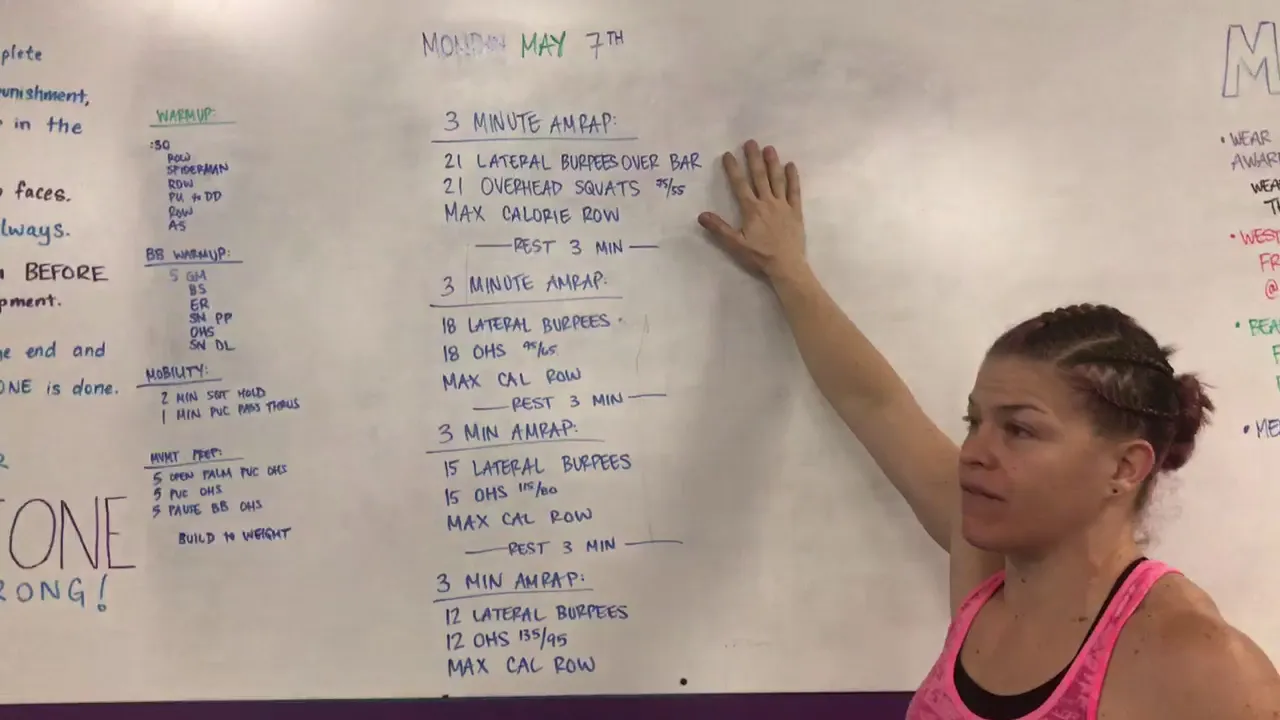 plete
unishment,
in the
faces.
lways.
BEFORE
pment.
e end and
ONE is done.
ONE
RONG!
WARMUP:
:30
ROW
SPIDERMAN
ROW
PU to DD
ROW
AS
BB WARMUP:
5 GM
BS
ER
SN PP
OHS
SN DL
MOBILITY:
2 MIN SQT HOLD
1 MIN PVC PASS THRUS
MVMT PREP:
5 OPEN PALM PVC OHS
5 PVC OHS
5 PAUSE BB OHS
BUILD to WEIGHT
MONDAY MAY 7TH
3 MINUTE AMRAP:
21 LATERAL BURPEES OVER BAR
21 OVERHEAD SQUATS 75/55
MAX CALORIE ROW
REST 3 MIN
3 MINUTE AMRAP:
18 LATERAL BURPEES
18 OHS 95/65
MAX CAL ROW
REST 3 MIN
3 MIN AMRAP:
15 LATERAL BURPEES
15 OHS 115/80
MAX CAL ROW
REST 3 MIN
3 MIN AMRAP:
12 LATERAL BURPEES
12 OHS 135/95
MAX CAL ROW
M
• WEAR
AWAR
WEA
TH
• WEST
FR
@
• BEA
F
• ME